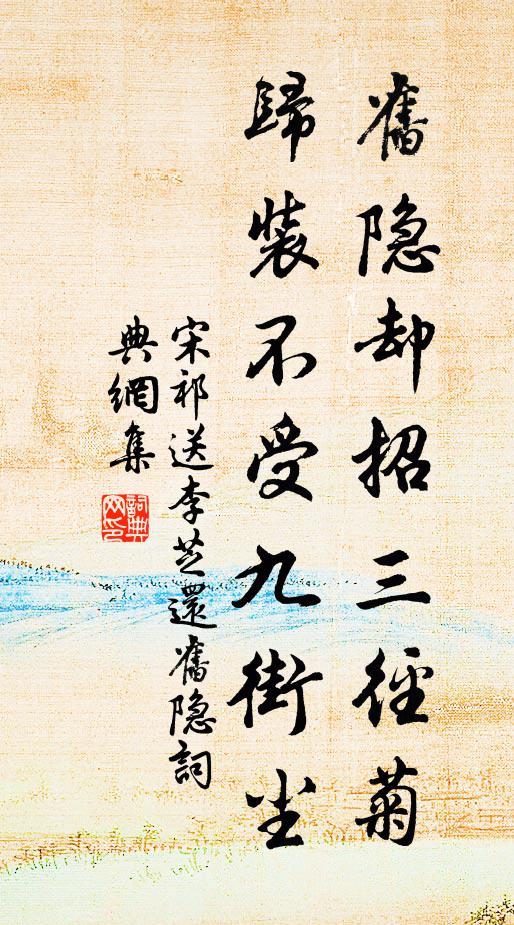 舊隐却招三徑菊
歸裝不受九街尘
宋祁送李芝還舊隐詞
典網集
詞典
网印